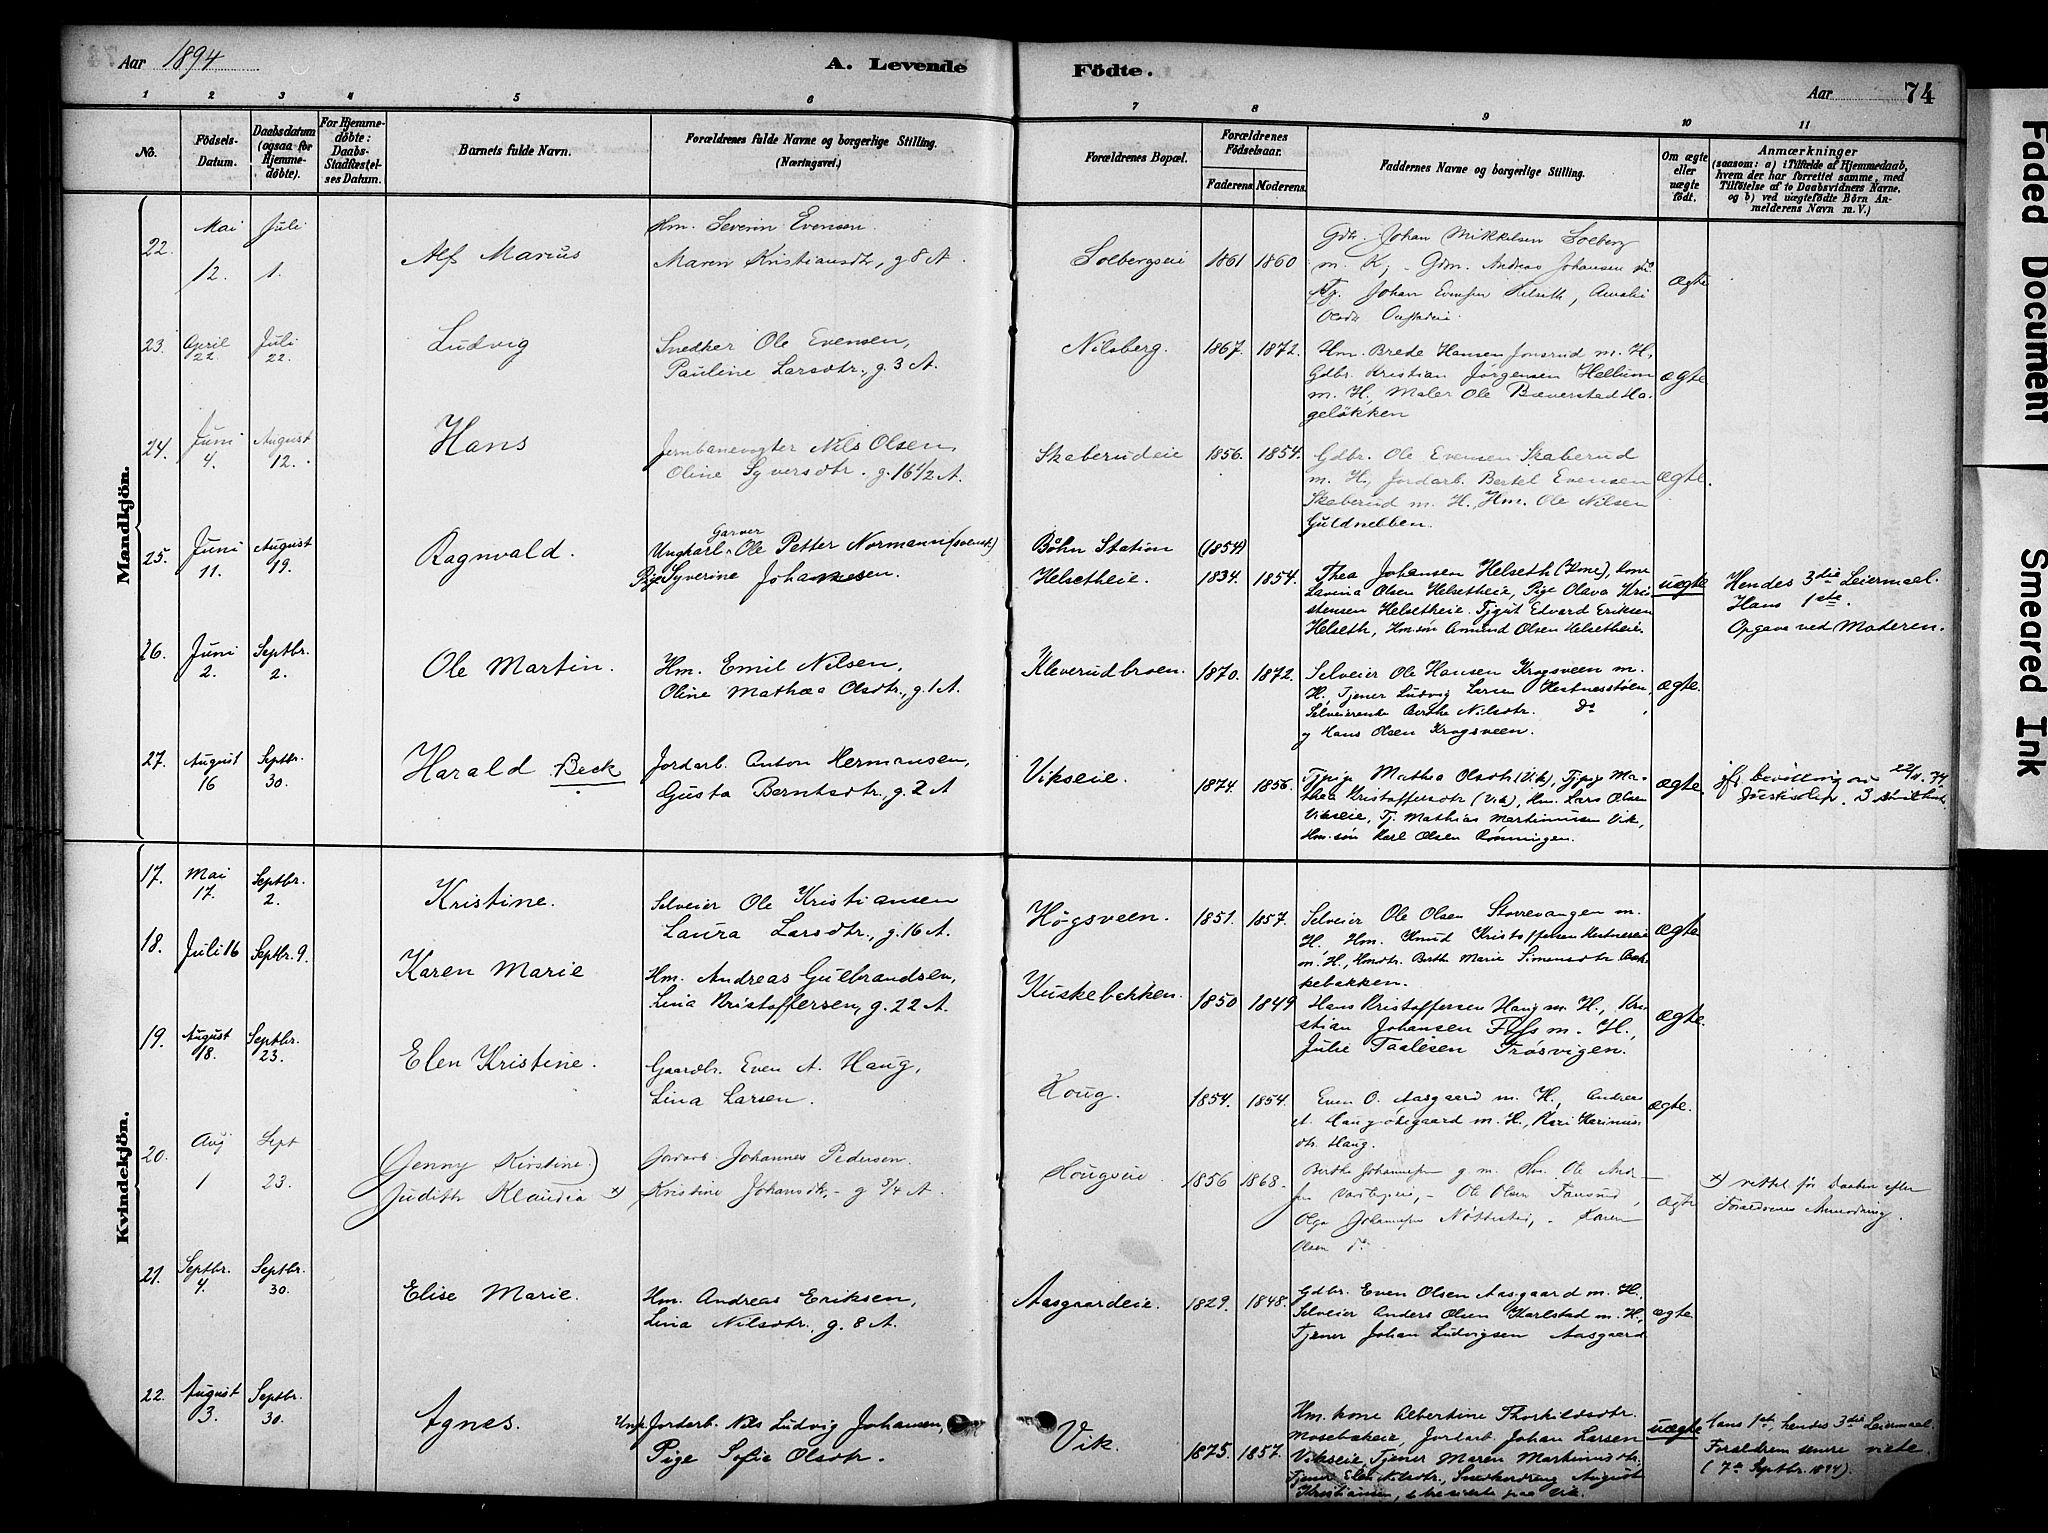 Aar 1894
A. Levende Födte.
Aar 74
1 2 3 4 5 6 7 8 9 10 11
No.
Födsels-Datum.
Daabsdatum (ogsaa for Hjemme-döbte).
For Hjemme-döbte: Daabs-Stadfæstel-ses Datum.
Barnets fulde Navn.
Forældrenes fulde Navne og borgerlige Stilling.
(Næringsvei.)
Forældrenes Bopæl.
Forældrenes Födselsaar.
Faderens. Moderens.
Faddernes Navne og borgerlige Stilling.
Om ægte eller uægte födt.
Anmærkninger
(saasom: a) i Tilfælde af Hjemmedaab,
hvem der har forrettet samme, med
Tilföielse af to Daabsvidners Navne,
og b) ved uægtefödte Börn An-
melderens Navn m. V.)
Mandkjön.
22. Mai 12. Juli 1. Alf Marius
Hm. Severin Evensen
Maren Kristiansdtr, g 8 A.
Solbergseie 1861 1860
Gdbr. Johan Mikkelsen Solberg
m. K, - Gdm. Andreas Johansen do
Tj. Johan Evensen Helseth, Amalie
Olsdtr
ægte
23. April 22. Juli 22. Ludvig
Snedker Ole Evensen,
Pauline Larsdtr., g. 3 A.
Nilsberg. 1867. 1872.
Hm. Brede Hansen Jonsrud m. H,
Gdbr. Kristian Jörgensen Hellum
m. H, Maler Ole Bæverstad Ha-
gelökken
ægte
24. Juni 4. August 12. Hans
Jernbanevogter Nils Olsen,
Oline Syversdtr. g. 16 1/2 A.
Skaberudeie 1856. 1854.
Gdbr. Ole Evensen Skaberud
m. H, Jordarb. Bertel Evensen
Skaberud m. H., Hm. Ole Nilsen
Guldnebben.
ægte.
25. Juni 11. August 19. Ragnvald.
Ungkarl Garver Ole Petter Normann (svensk)
Pige Syverine Johannesen.
Böhn Station (1854)
Helsetheie. 1834. 1854.
Thea Johansen Helseth (Kone), Kone
Lavina Olsen Helsetheie, Pige Olava Kri-
stensen Helsetheie. Tjgut Edvard Eriksen
Helseth, Hm.sön Amund Olsen Helsetheie.
uægte
Hendes 3die Leiermaal.
Hans 1ste.
Opgave ved Moderen.
26. Juni 2. Septbr. 2. Ole Martin.
Hm. Emil Nilsen,
Oline Mathea Olsdtr., g. 1 A.
Kleverudbroen. 1870. 1872.
Selveier Ole Hansen Krogsveen m.
H, Tjener Ludvig Larsen Hestnesstöen,
Selveierenke Berthe Nilsdtr. Do,
og Hans Olsen Krogsveen.
ægte.
27. August 16 Septbr. 30. Harald Beck
Jordarb. Anton Hermansen,
Gusta Berntsdtr., g. 2 A
Vikseie. 1874. 1856.
Tjpige Mathea Olsdtr (Vik), Tjpige Ma-
thea Kristoffersdtr (Vik), Hm. Lars Olsen
Vikseie, Tj. Mathias Martinusen Vik,
Hm.sön Karl Olsen Rönningen.
ægte.
Kvindekjön.
17. Mai 17. Septbr. 2. Kristine.
Selveier Ole Kristiansen
Laura Larsdtr., g. 16 A.
Högsveen. 1851. 1857.
Selveier Ole Olsen Storrevangen m.
H, Hm. Knud Kristoffersen Hestneseie
m. H., Hmdtr. Berthe Marie Simensdtr. Bak-
kebakken.
ægte
18. Juli 16 Septbr. 9. Karen Marie
Hm. Andreas Gulbrandsen,
Lina Kristoffersen, g. 22 A.
Kuskebakken. 1850 1849
Hans Kristoffersen Haug m. H., Kri-
stian Johansen Flyss m. H,
Julie Paalsen Trösvigen.
ægte.
19. August 18. Septbr. 23. Elen Kristine.
Gaardbr. Even A. Haug,
Lina Larsen.
Houg. 1854. 1854.
Even O. Aasgaard m. H, Andreas
A. Haug ödegaard m. H, Kari Karinus-
dtr. Haug.
ægte.
20. Aug 1 Sept 23. (Jenny Kirstine.)
Judith Klaudia x)
Jordarb. Johannes Pedersen
Kristine Johansdtr - g 3/4 A.
Hougseie 1856 1868.
Berthe Johannesen g. m. Hm. Ole
Ole Olsen
Olga Johannesen Nöttestad, - Karen
Olsen do.
ægte
x) rettet för Daaben efter
Forældrenes Anmodning.
21. Septbr. 4. Septbr. 30. Elise Marie.
Hm. Andreas Eriksen,
Lina Nilsdtr., g. 8 A.
Aasgaardeie. 1829. 1848.
Gdbr. Even Olsen Aasgaard m. H,
Selveier Anders Olsen Karlstad m. H,
Tjener Johan Ludvigsen Aasgaard
ægte
22. August 3. Septbr. 30. Agnes.
Ungk. Jordarb. Nils Ludvig Johansen,
Pige Sofie Olsdtr.
Vik. 1875. 1857.
Hm. kone Albertine Thorkildsdtr.
Mosebækeie, Jordarb. Johan Larsen
Vikseie, Tjener Maren Martinusdtr,
Tjener Elen Nilsdtr., Snedkerdreng August
Kristiansen,
uægte
Hans 1ste, hendes 3die Leiermaal.
Forældrene senere viede
(7de Septbr. 1894).
Faded Document
Smeared Ink